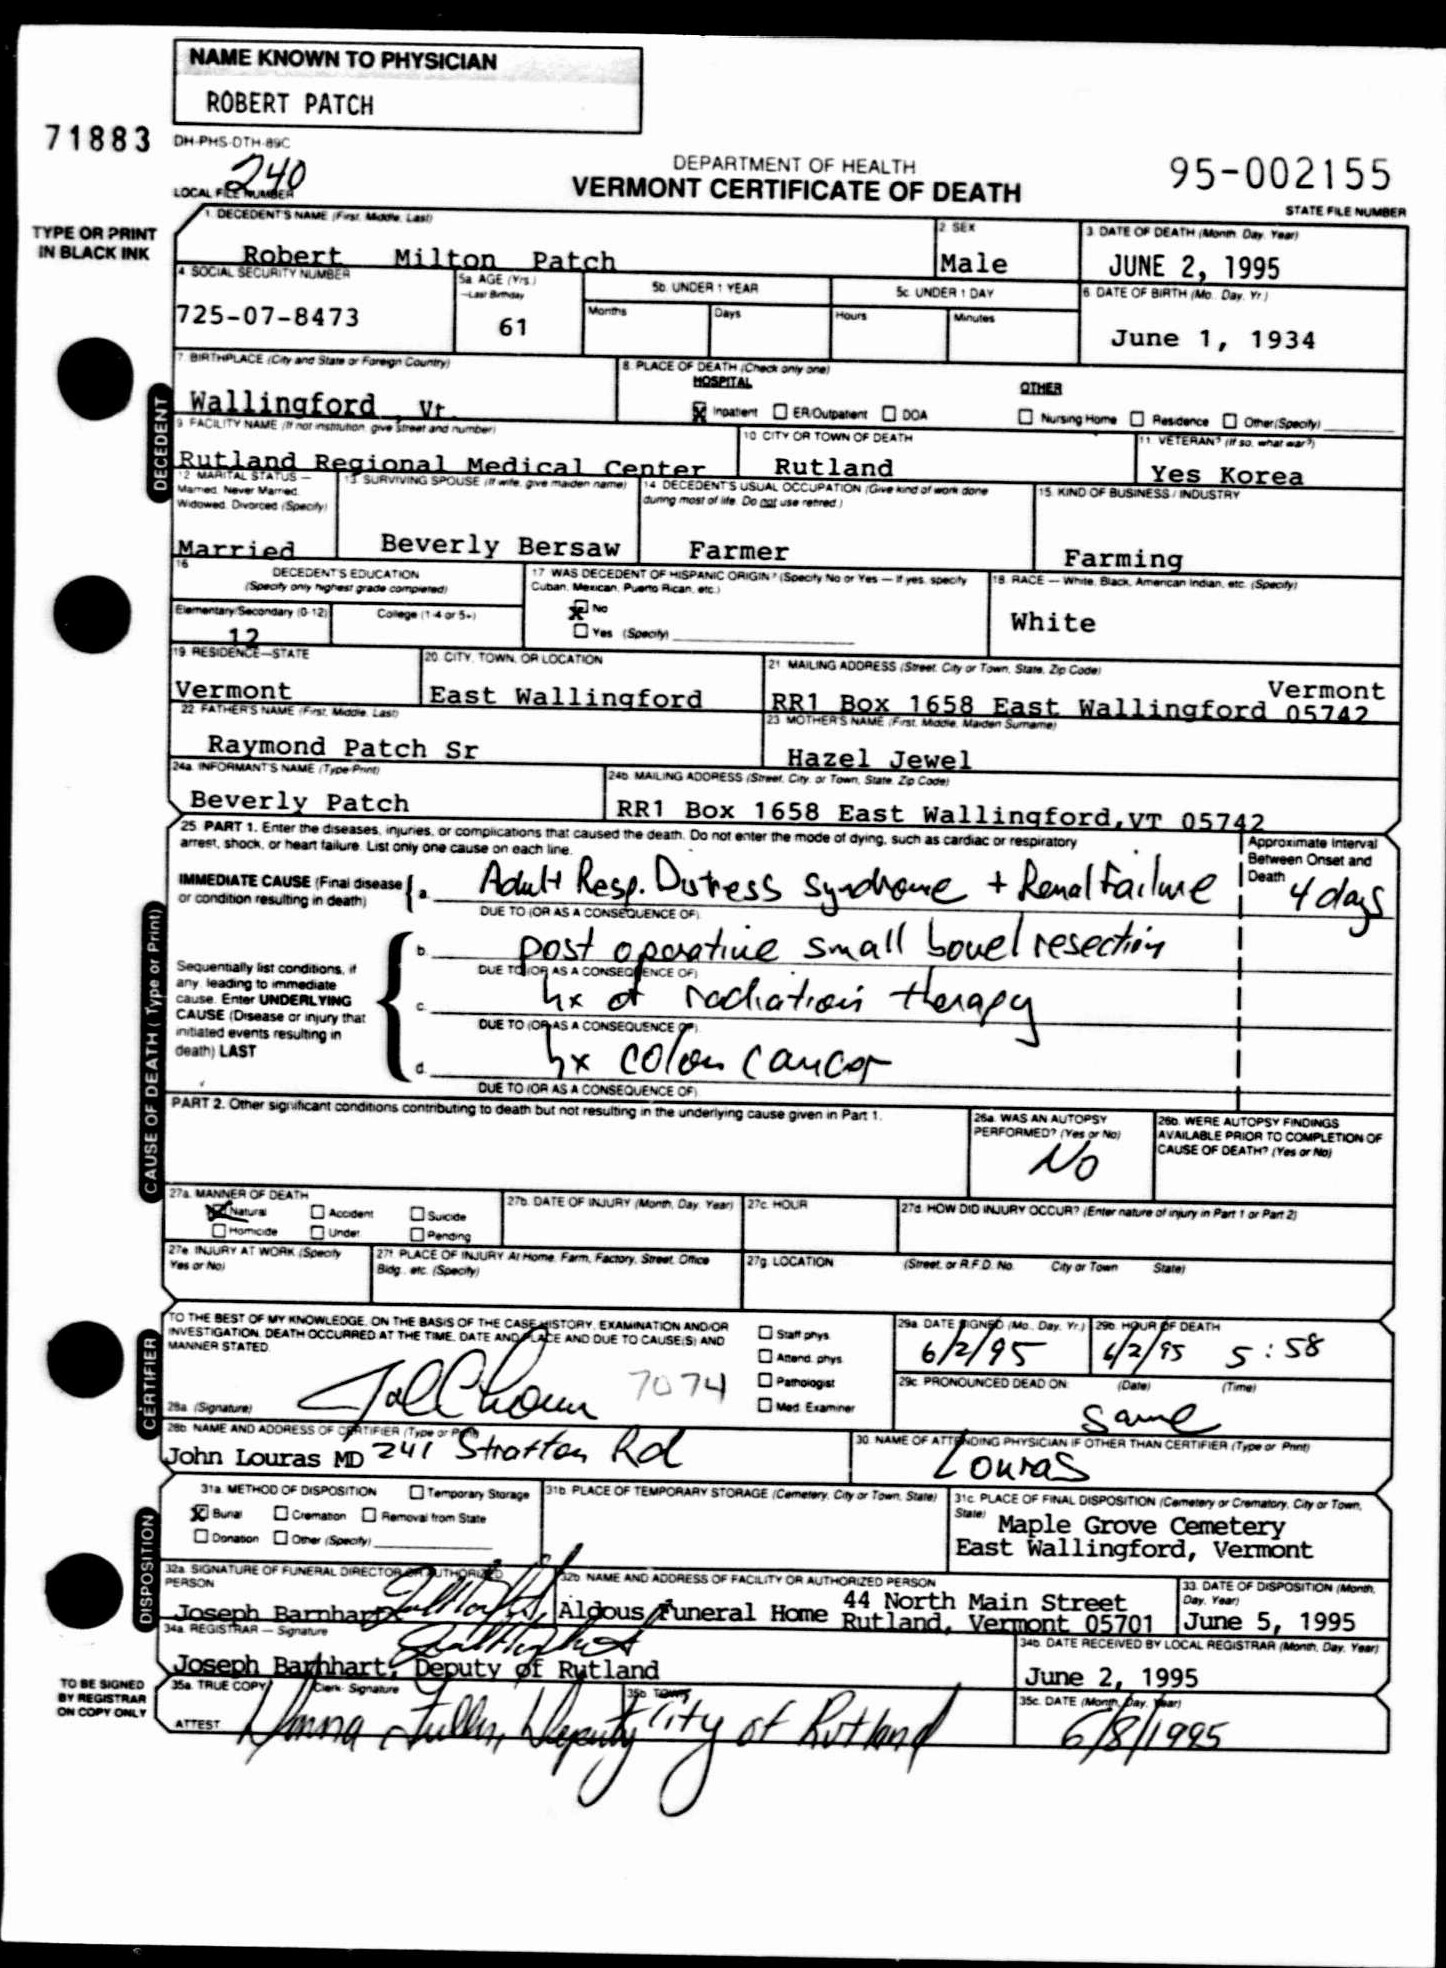 NAME KNOWN TO PHYSICIAN
ROBERT PATCH
71883
DH-PHS-DTH-89C
240
LOCAL FILE NUMBER
DEPARTMENT OF HEALTH
VERMONT CERTIFICATE OF DEATH
95-002155
STATE FILE NUMBER
TYPE OR PRINT
IN BLACK INK
DECEDENT
1. DECEDENT'S NAME (First, Middle, Last)
Robert Milton Patch
2. SEX
Male
3. DATE OF DEATH (Month, Day, Year)
JUNE 2, 1995
4. SOCIAL SECURITY NUMBER
725-07-8473
5a. AGE (Yrs.)
—Last Birthday
61
5b. UNDER 1 YEAR
Months
Days
5c. UNDER 1 DAY
Hours
Minutes
6. DATE OF BIRTH (Mo., Day, Yr.)
June 1, 1934
7. BIRTHPLACE (City and State or Foreign Country)
Wallingford , Vt.
8. PLACE OF DEATH (Check only one)
HOSPITAL
Inpatient ER/Outpatient DOA
OTHER
Nursing Home Residence Other (Specify)
9. FACILITY NAME (If not institution, give street and number)
Rutland Regional Medical Center
10. CITY OR TOWN OF DEATH
Rutland
11. VETERAN? (If so, what war?)
Yes Korea
12. MARITAL STATUS —
Married, Never Married,
Widowed, Divorced (Specify)
Married
13. SURVIVING SPOUSE (If wife, give maiden name)
Beverly Bersaw
14. DECEDENT'S USUAL OCCUPATION (Give kind of work done
during most of life. Do not use retired.)
Farmer
15. KIND OF BUSINESS / INDUSTRY
Farming
16.
DECEDENT'S EDUCATION
(Specify only highest grade completed)
Elementary/Secondary (0-12)
12
College (1-4 or 5+)
17. WAS DECEDENT OF HISPANIC ORIGIN? (Specify No or Yes — If yes, specify
Cuban, Mexican, Puerto Rican, etc.)
No
Yes (Specify)
18. RACE — White, Black, American Indian, etc. (Specify)
White
19. RESIDENCE—STATE
Vermont
20. CITY, TOWN, OR LOCATION
East Wallingford
21. MAILING ADDRESS (Street, City or Town, State, Zip Code)
Vermont
RR1 Box 1658 East Wallingford 05742
22. FATHER'S NAME (First, Middle, Last)
Raymond Patch Sr
23. MOTHER'S NAME (First, Middle, Maiden Surname)
Hazel Jewel
24a. INFORMANT'S NAME (Type/Print)
Beverly Patch
24b. MAILING ADDRESS (Street, City, or Town, State, Zip Code)
RR1 Box 1658 East Wallingford,VT 05742
CAUSE OF DEATH (Type or Print)
25. PART 1. Enter the diseases, injuries, or complications that caused the death. Do not enter the mode of dying, such as cardiac or respiratory
arrest, shock, or heart failure. List only one cause on each line.
Approximate Interval
Between Onset and
Death
4 days
IMMEDIATE CAUSE (Final disease
or condition resulting in death)
a. Adult Resp. Distress Syndrome + Renal Failure
DUE TO (OR AS A CONSEQUENCE OF):
b. post operative small bowel resection
DUE TO (OR AS A CONSEQUENCE OF):
c. hx of radiation therapy
DUE TO (OR AS A CONSEQUENCE OF):
d. hx colon cancer
DUE TO (OR AS A CONSEQUENCE OF):
Sequentially list conditions, if
any, leading to immediate
cause. Enter UNDERLYING
CAUSE (Disease or injury that
initiated events resulting in
death) LAST
PART 2. Other significant conditions contributing to death but not resulting in the underlying cause given in Part 1.
26a. WAS AN AUTOPSY
PERFORMED? (Yes or No)
No
26b. WERE AUTOPSY FINDINGS
AVAILABLE PRIOR TO COMPLETION OF
CAUSE OF DEATH? (Yes or No)
27a. MANNER OF DEATH
Natural Accident Suicide
Homicide Under. Pending
27b. DATE OF INJURY (Month, Day, Year)
27c. HOUR
27d. HOW DID INJURY OCCUR? (Enter nature of injury in Part 1 or Part 2)
27e. INJURY AT WORK (Specify
Yes or No)
27f. PLACE OF INJURY At Home, Farm, Factory, Street, Office
Bldg., etc. (Specify)
27g. LOCATION (Street, or R.F.D. No. City or Town State)
CERTIFIER
TO THE BEST OF MY KNOWLEDGE, ON THE BASIS OF THE CASE HISTORY, EXAMINATION AND/OR
INVESTIGATION, DEATH OCCURRED AT THE TIME, DATE AND PLACE AND DUE TO CAUSE(S) AND
MANNER STATED.
28a. (Signature)
7074
Staff phys.
Attend. phys
Pathologist
Med. Examiner
29a. DATE SIGNED (Mo., Day, Yr.)
6/2/95
29b. HOUR OF DEATH
6/2/95 5:58
29c. PRONOUNCED DEAD ON: (Date) (Time)
same
28b. NAME AND ADDRESS OF CERTIFIER (Type or Print)
John Louras MD 241 Stratton Rd
30. NAME OF ATTENDING PHYSICIAN IF OTHER THAN CERTIFIER (Type or Print)
Louras
DISPOSITION
31a. METHOD OF DISPOSITION Temporary Storage
Burial Cremation Removal from State
Donation Other (Specify)
31b. PLACE OF TEMPORARY STORAGE (Cemetery, City or Town, State)
31c. PLACE OF FINAL DISPOSITION (Cemetery or Crematory, City or Town,
State)
Maple Grove Cemetery
East Wallingford, Vermont
32a. SIGNATURE OF FUNERAL DIRECTOR OR AUTHORIZED
PERSON
Joseph Barnhart
32b. NAME AND ADDRESS OF FACILITY OR AUTHORIZED PERSON
Aldous Funeral Home 44 North Main Street
Rutland, Vermont 05701
33. DATE OF DISPOSITION (Month,
Day, Year)
June 5, 1995
34a. REGISTRAR — Signature
Joseph Barnhart, Deputy of Rutland
34b. DATE RECEIVED BY LOCAL REGISTRAR (Month, Day, Year)
June 2, 1995
TO BE SIGNED
BY REGISTRAR
ON COPY ONLY
35a. TRUE COPY Clerk- Signature
ATTEST
Donna Fuller, Deputy
35b. TOWN
City of Rutland
35c. DATE (Month, Day, Year)
6/8/1995